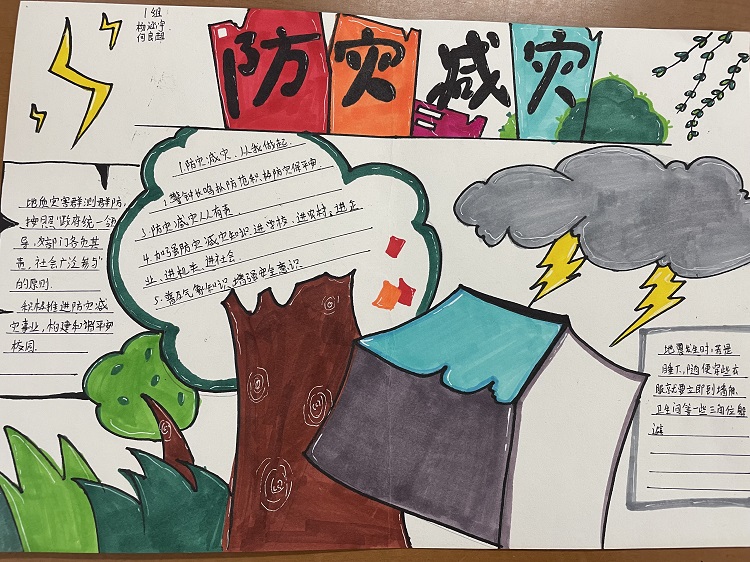 1组
防灾减灾
1.防灾减灾、从我做起.
2.警钟长鸣抓防范积极防灾保平安
3.防灾减灾人人有责.
4.加强防灾减灾知识进学校、进农村、进企
业、进机关、进社会.
5.普及气象知识,增强安全意识
地质灾害群测群防,
按照"政府统一领
导,各部门各负其
责,社会广泛参与"
的原则.
积极推进防灾减
灾事业,构建和谐平安
校园.
地震发生时,若是
睡下,随便穿些衣
服就要立即到墙角.
卫生间等一些三角位躲
避